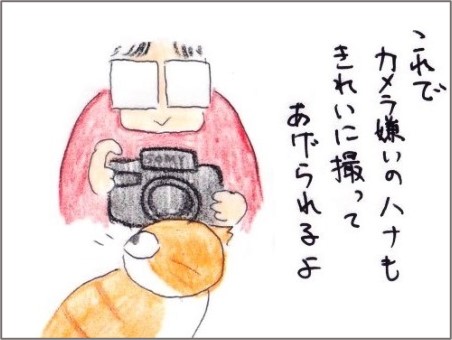 これで
カメラ嫌いのハナも
きれいに撮って
あげられるよ
SOMY